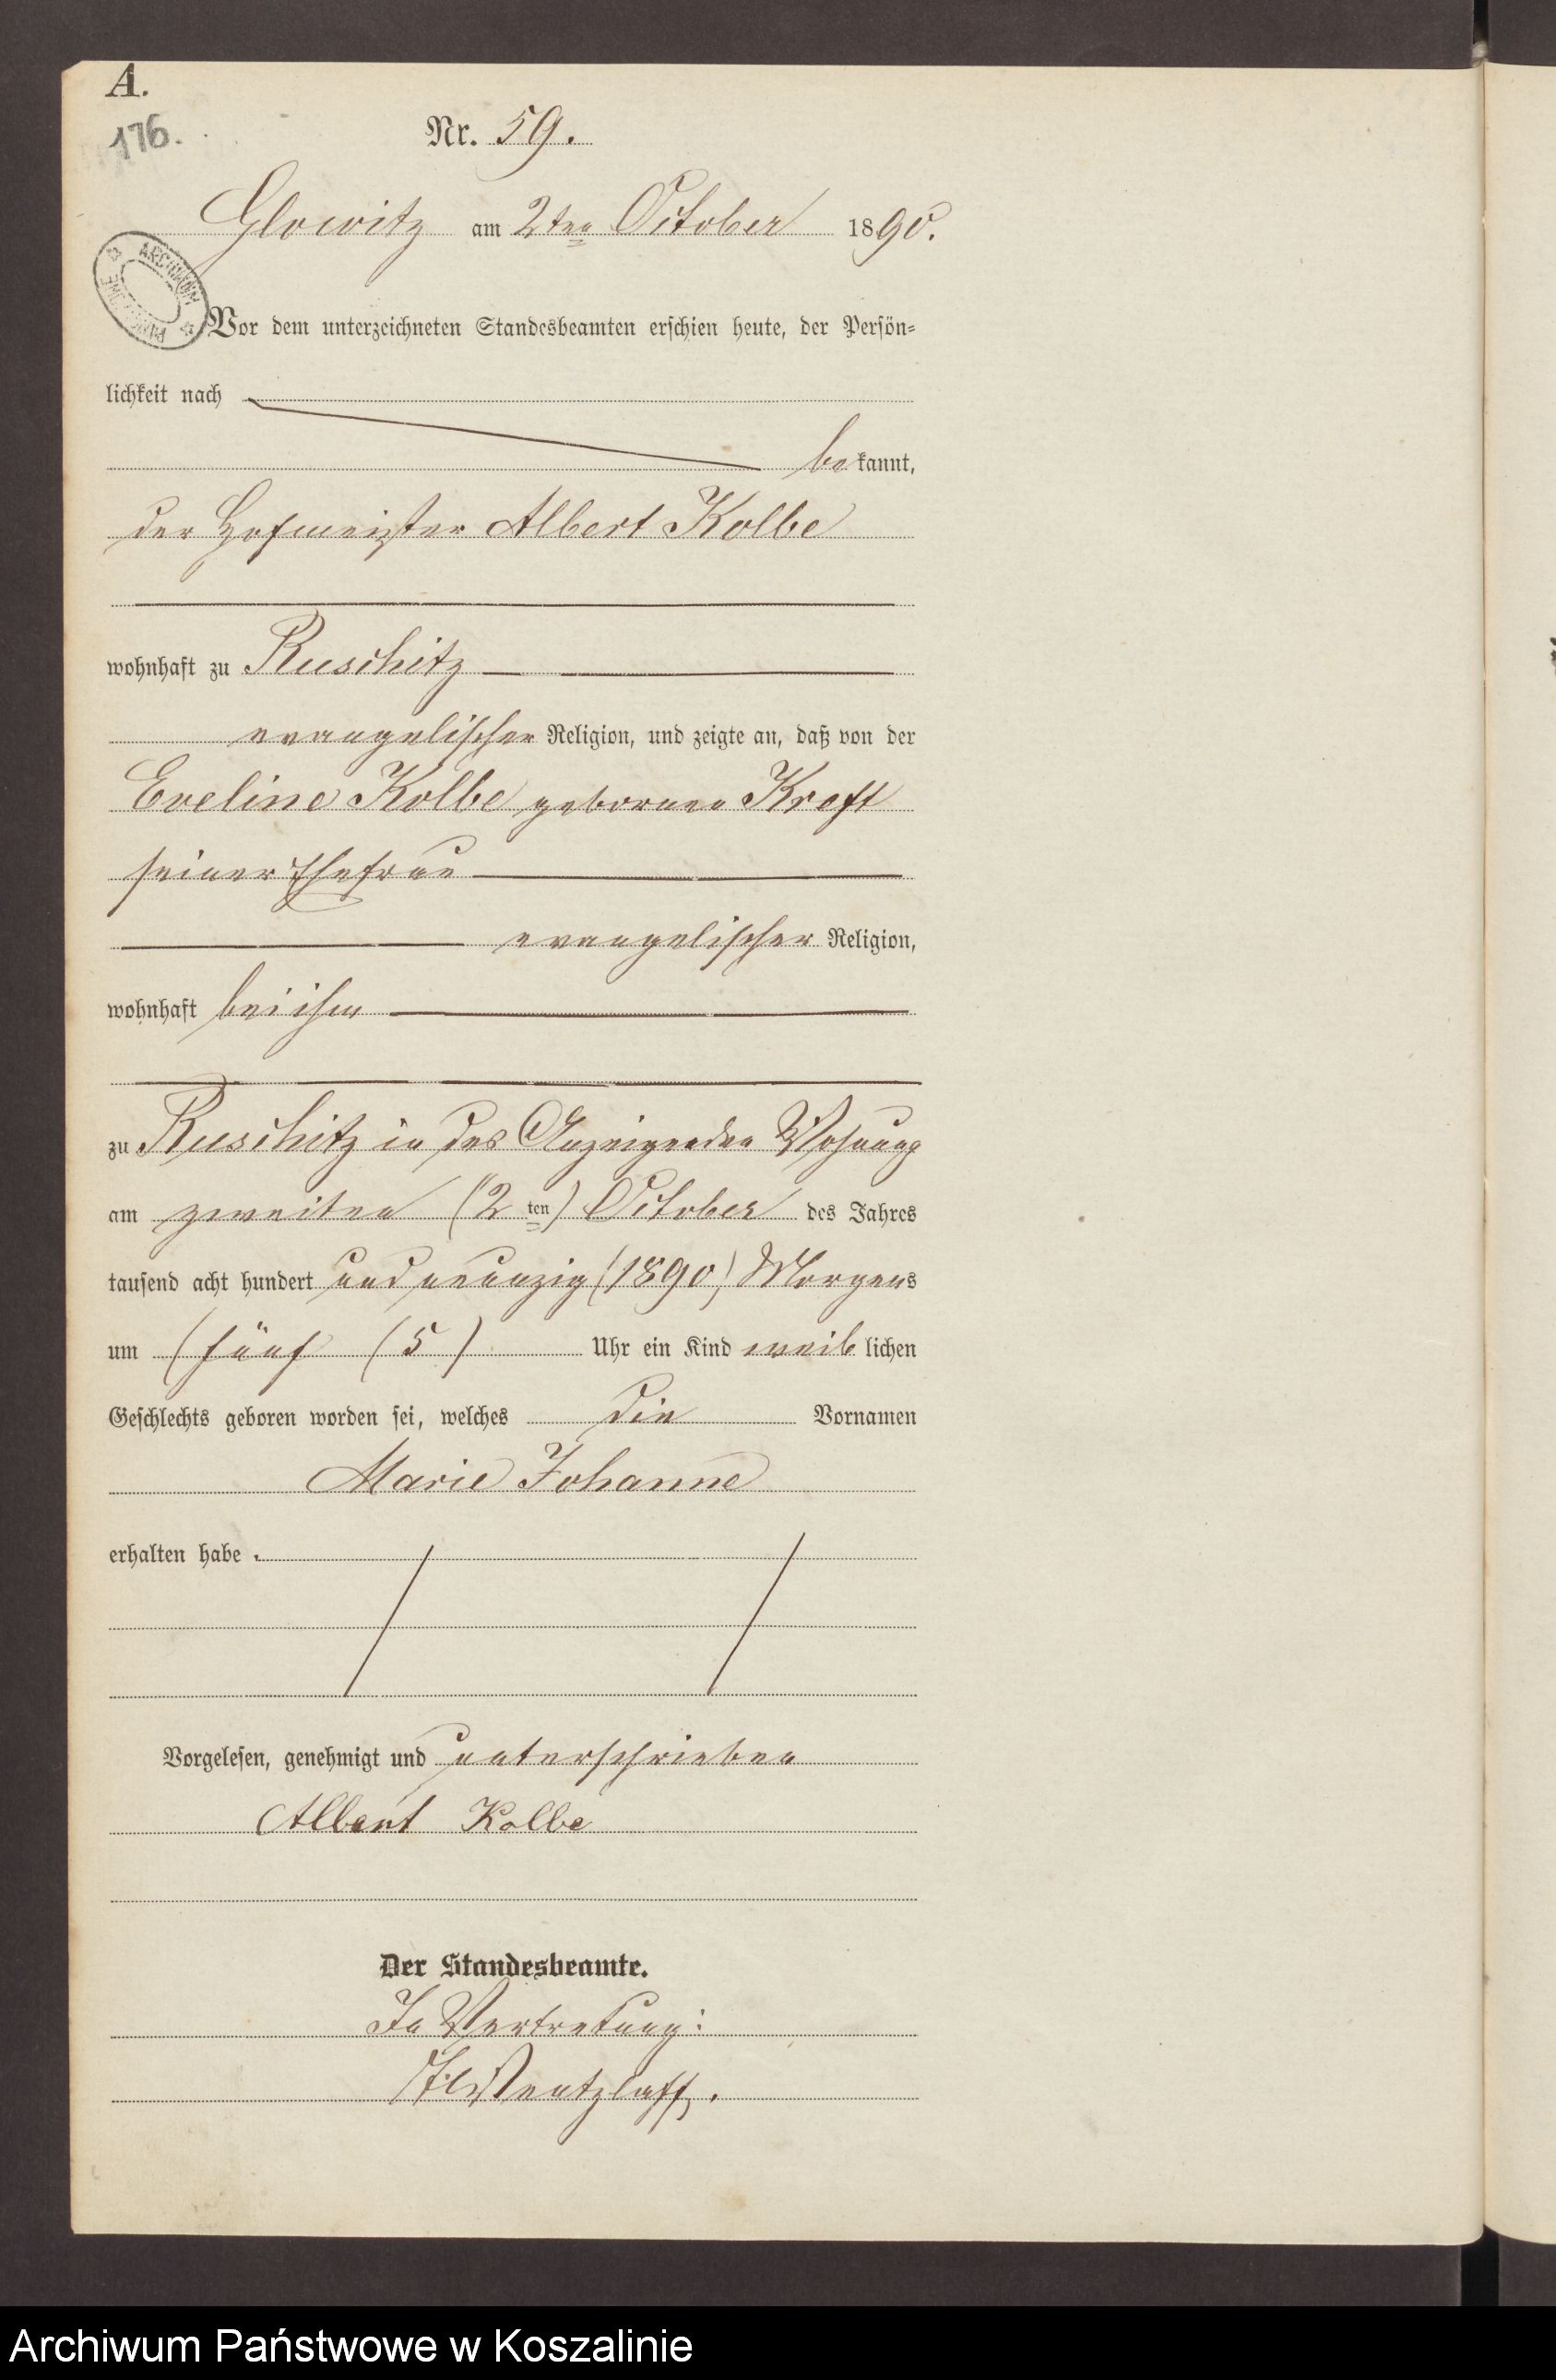 A.
176.
Nr. 59.
Glowitz am 2ten October 1890.
ARCHIWUM
Vor dem unterzeichneten Standesbeamten erschien heute, der Persön-
lichkeit nach
bekannt,
der Hofmeister Albert Kolbe
wohnhaft zu Ruschitz
evangelischer Religion, und zeigte an, daß von der
Eveline Kolbe geborenen Kreft
seiner Ehefrau
evangelischer Religion,
wohnhaft bei ihm
zu Ruschitz in des Anzeigenden Wohnung
am zweiten (2ten) October des Jahres
tausend acht hundert und neunzig (1890) Morgens
um fünf (5) Uhr ein Kind weiblichen
Geschlechts geboren worden sei, welches die Vornamen
Marie Johanne
erhalten habe.
Vorgelesen, genehmigt und unterschrieben
Albert Kolbe
Der Standesbeamte.
In Vertretung:
Wentzlaff.
Archiwum Państwowe w Koszalinie